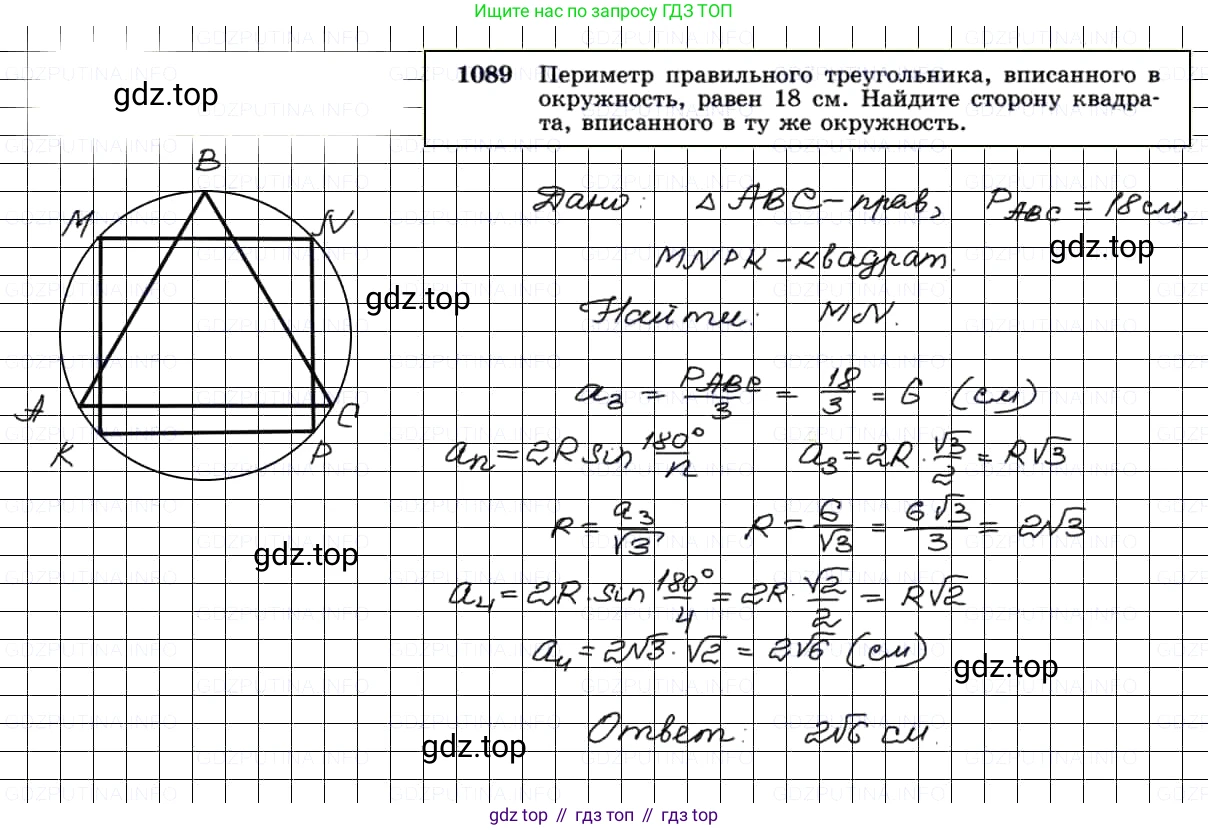 Ищите нас по запросу ГДЗ ТОП
1089 Периметр правильного треугольника, вписанного в
окружность, равен 18 см. Найдите сторону квадра-
та, вписанного в ту же окружность.
gdz.top
B
M
N
A
C
K
P
Дано: △ABC - прав, P_ABC = 18 см,
gdz.top
MNPK - квадрат.
gdz.top
Найти: MN.
a₃ = P_ABC/3 = 18/3 = 6 (см)
aₙ = 2R sin 180°/n a₃ = 2R · √3/2 = R√3
R = a₃/√3, R = 6/√3 = 6√3/3 = 2√3
gdz.top
a₄ = 2R · sin 180°/4 = 2R · √2/2 = R√2
a₄ = 2√3 · √2 = 2√6 (см)
gdz.top
Ответ: 2√6 см.
gdz.top
gdz top // гдз топ // гдз top
GDZPUTINA.INFO